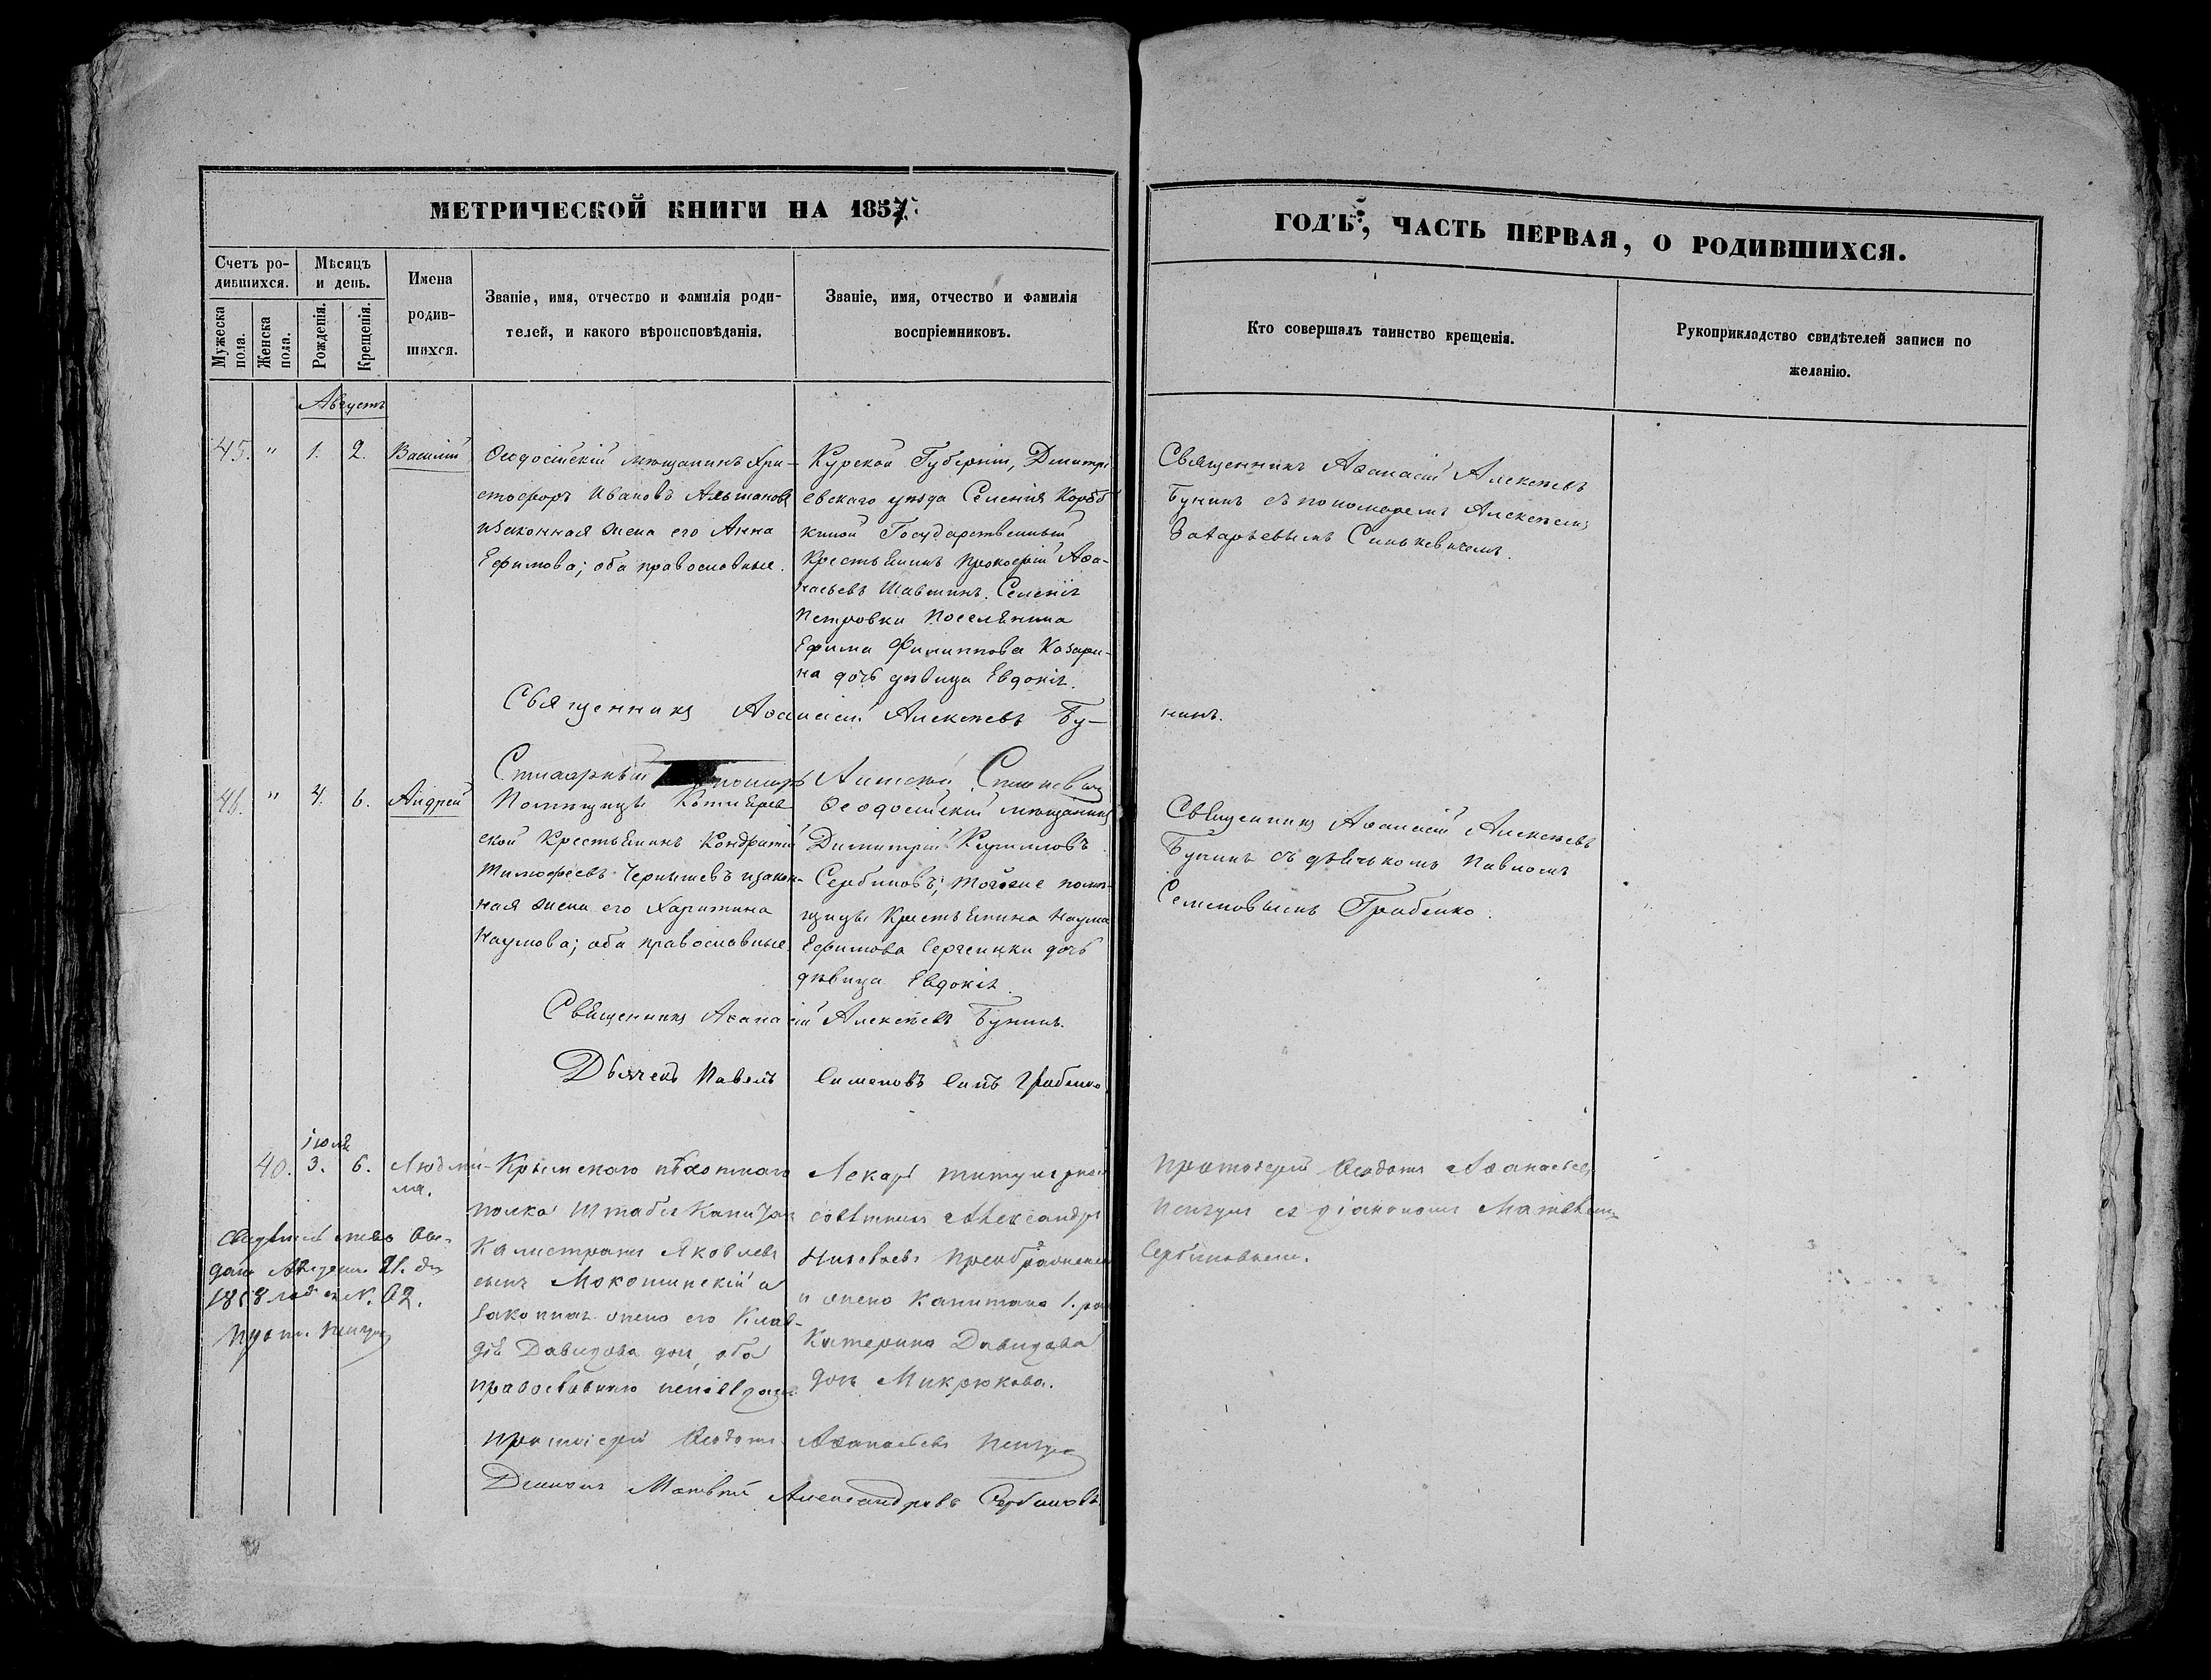 МЕТРИЧЕСКОЙ КНИГИ НА 1857
ГОДЪ, ЧАСТЬ ПЕРВАЯ, О РОДИВШИХСЯ.
Счетъ ро-
дившихся.
Мѣсяцъ
и день.
Имена
родив-
шихся.
Мужеска
пола.
Женска
пола.
Рожденія.
Крещенія.
Званіе, имя, отчество и фамилія роди-
телей, и какого вѣроисповѣданія.
Званіе, имя, отчество и фамилія
воспріемниковъ.
Кто совершалъ таинство крещенія.
Рукоприкладство свидѣтелей записи по
желанію.
Августъ
45. " 1. 2. Василій
Ѳеодосійскій мѣщанинъ Хри-
стофоръ Ивановъ
и законная жена его Анна
Ефимова; оба православные.
Курской Губерніи, Дмитрі
евскаго уѣзда Селенія
Государственный
крестьянинъ Прокофій Аѳа-
насьевъ Селенія
Петровки поселянина
Ефима Филиппова Козари-
на дочь дѣвица Евдокія.
Священникъ Аѳанасій Алексѣевъ
Бунинъ съ пономаремъ Алексѣемъ
Захарьевымъ Синькевичемъ.
Священникъ Аѳанасій Алексѣевъ Бу-
нинъ.
46. " 4. 6. Андрей
Помѣщицы
ской крестьянинъ Кондратій
Тимофеевъ Чернышевъ и закон-
ная жена его Харитина
Наумова; оба православные
Ѳеодосійскій мѣщанинъ
Димитрій Кириловъ
Сербиновъ; тойже помѣ-
щицы крестьянина Наума
Ефимова дочь
дѣвица Евдокія.
Священникъ Аѳанасій Алексѣевъ
Бунинъ съ дьячкомъ Павломъ
Семеновымъ Грабенко.
Священникъ Аѳанасій Алексѣевъ Бунинъ.
Дьячекъ Павелъ Симеоновъ Грабенко
Іюля
40. 3. 6. Людми-
ла.
Крымскаго пѣхотнаго
полка Штабсъ Капитан
Калистратъ Яковлевъ
сынъ Мокошинскій и
законная жена его Клав-
дія Давидова дочь, оба
православнаго исповѣдан
Лекарь титулярный
совѣтникъ Александръ
и жена Капитана 1. ра
Катерина Давидова
дочь Микрюкова.
Протоіерей Аѳанасьевъ
съ діакономъ Матвѣемъ
Сербиновымъ.
Протоіерей Аѳанасьевъ
Діаконъ Матвѣй Александровъ Сербиновъ